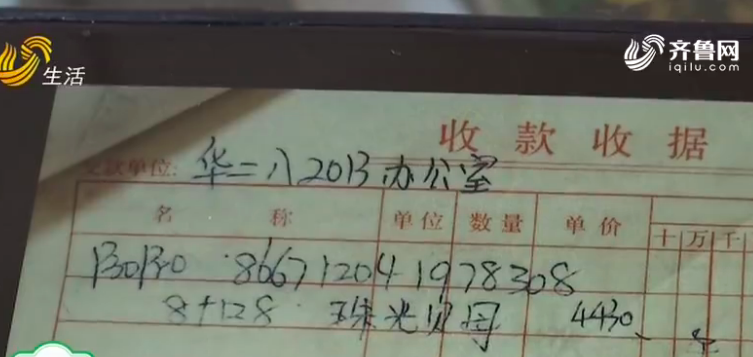 生活
齐鲁网
iqilu.com
收款收据
交款单位: 华二八2013办公室
名称 单位 数量 单价 十 万 千
866712041978308
8+128 珠光贝母 4430